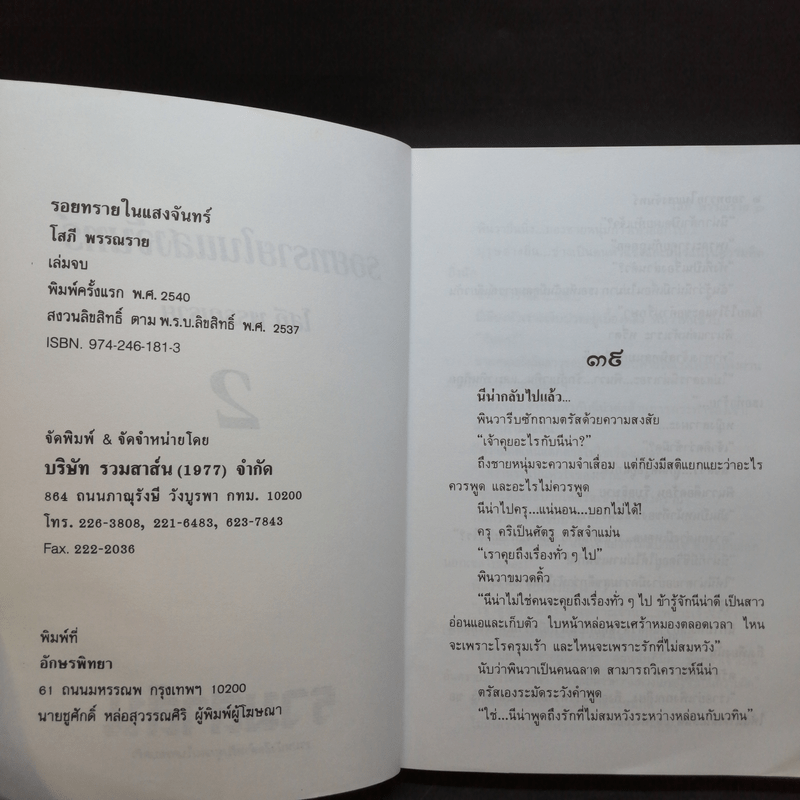 รอยทรายในแสงจันทร์
โสภี พรรณราย
เล่มจบ
พิมพ์ครั้งแรก พ.ศ. 2540
สงวนลิขสิทธิ์ ตาม พ.ร.บ.ลิขสิทธิ์ พ.ศ. 2537
ISBN. 974-246-181-3
จัดพิมพ์ & จัดจำหน่ายโดย
บริษัท รวมสาส์น (1977) จำกัด
864 ถนนภาณุรังษี วังบูรพา กทม. 10200
โทร. 226-3808, 221-6483, 623-7843
Fax. 222-2036
พิมพ์ที่
อักษรพิทยา
61 ถนนมหรรณพ กรุงเทพฯ 10200
นายชูศักดิ์ หล่อสุวรรณศิริ ผู้พิมพ์ผู้โฆษณา
๓๙
นีน่ากลับไปแล้ว...
พินวารีบซักถามตรัสด้วยความสงสัย
“เจ้าคุยอะไรกับนีน่า?”
ถึงชายหนุ่มจะความจำเสื่อม แต่ก็ยังมีสติแยกแยะว่าอะไร
ควรพูด และอะไรไม่ควรพูด
นีน่าไปครุ...แน่นอน...บอกไม่ได้!
ครุ คริเป็นศัตรู ตรัสจำแม่น
“เราคุยถึงเรื่องทั่ว ๆ ไป”
พินวาขมวดคิ้ว
“นีน่าไม่ใช่คนจะคุยถึงเรื่องทั่ว ๆ ไป ข้ารู้จักนีน่าดี เป็นสาว
อ่อนแอและเก็บตัว ใบหน้าหล่อนจะเศร้าหมองตลอดเวลา ไหน
จะเพราะโรครุมเร้า และไหนจะเพราะรักที่ไม่สมหวัง”
นับว่าพินวาเป็นคนฉลาด สามารถวิเคราะห์นีน่า
ตรัสเองระมัดระวังคำพูด
“ใช่...นีน่าพูดถึงรักที่ไม่สมหวังระหว่างหล่อนกับเวทิน”